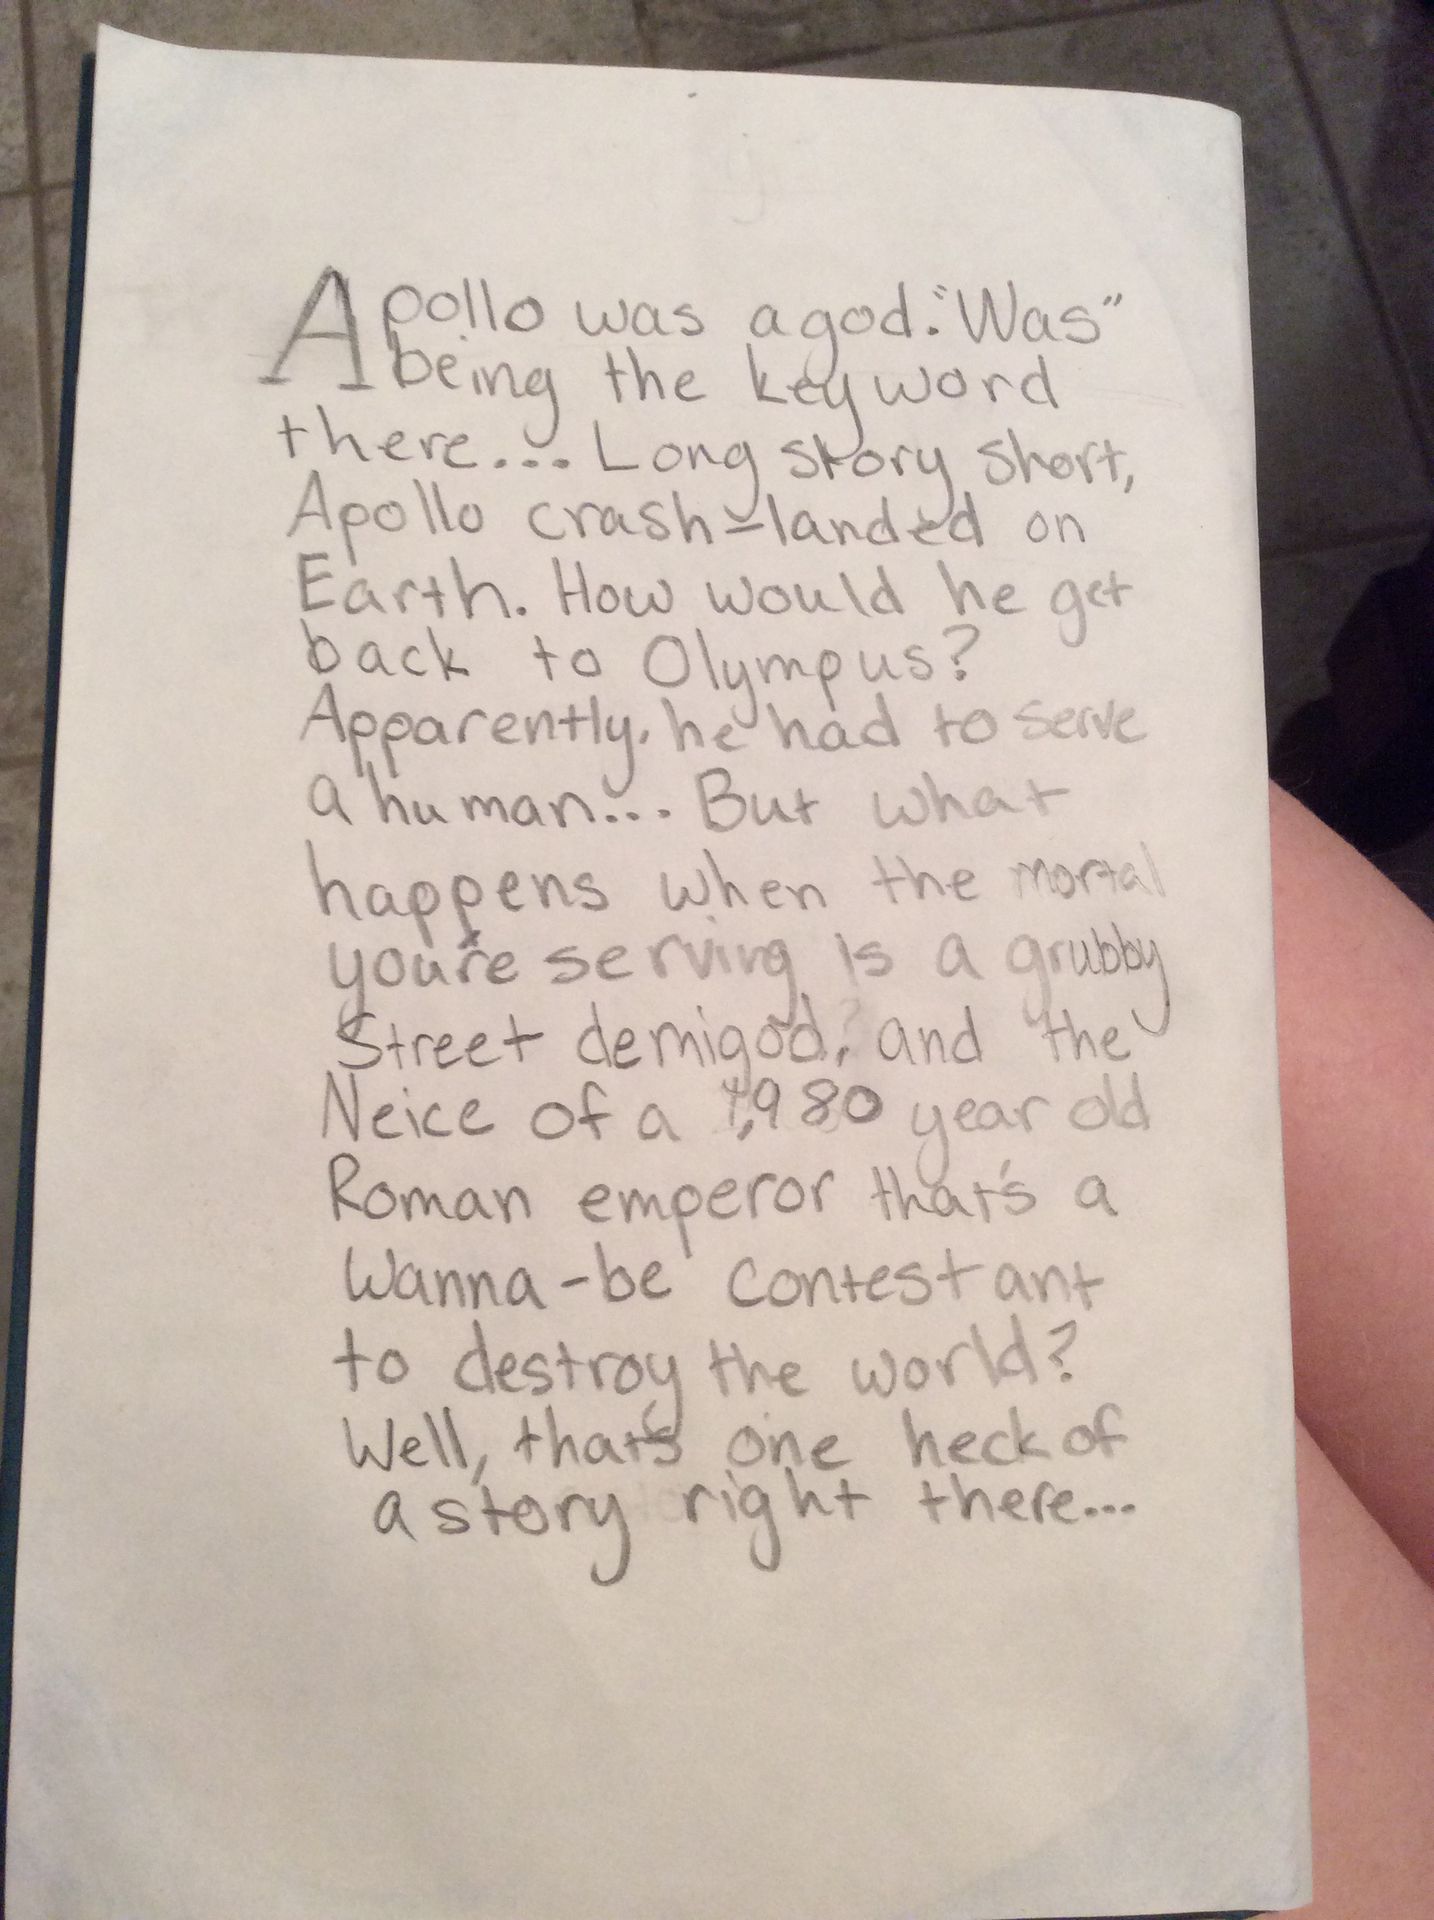 Apollo was a god. "Was"
being the key word
there... Long story short,
Apollo crash-landed on
Earth. How would he get
back to Olympus?
Apparently, he had to serve
a human... But what
happens when the mortal
you're serving is a grubby
Street demigod, and the
Neice of a 1,980 year old
Roman emperor that's a
Wanna-be contestant
to destroy the world?
Well, that's one heck of
a story right there...